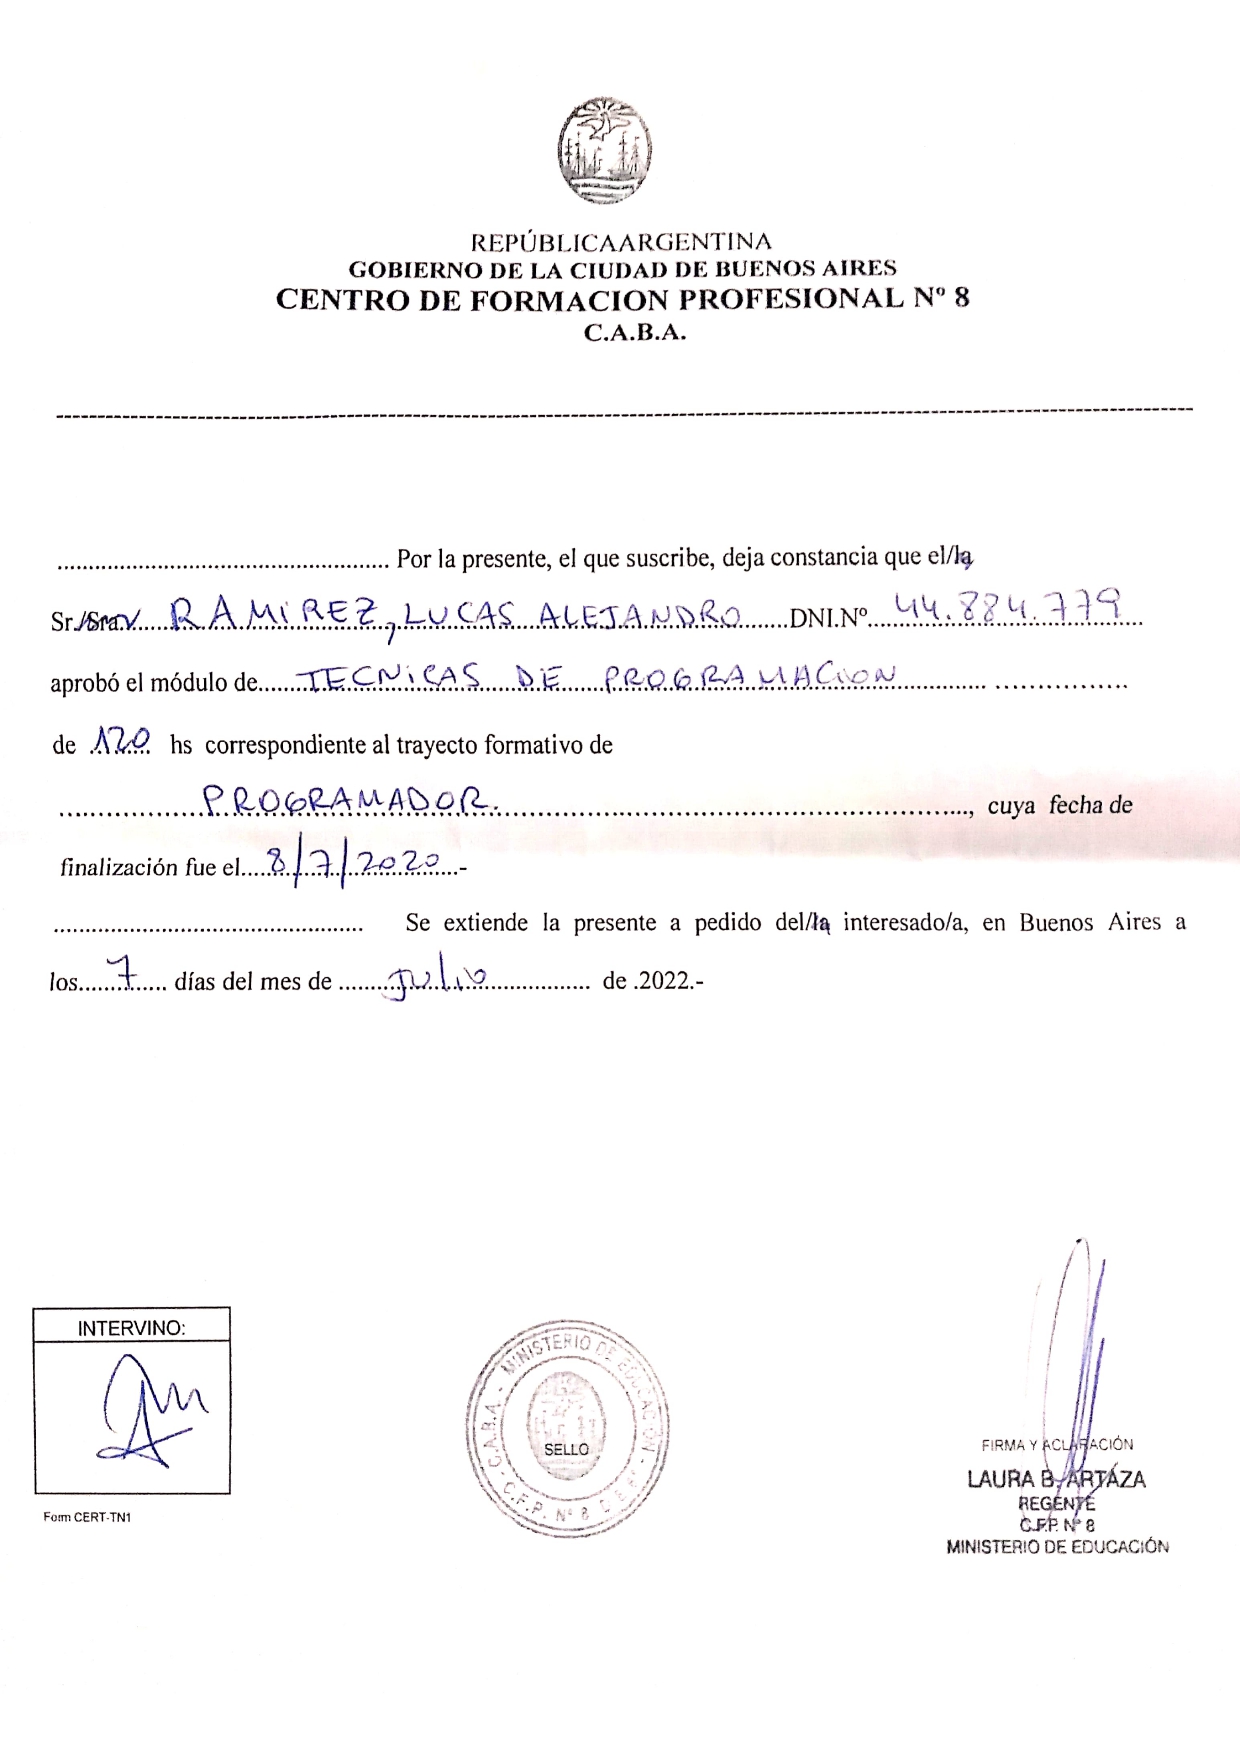 REPÚBLICAARGENTINA
GOBIERNO DE LA CIUDAD DE BUENOS AIRES
CENTRO DE FORMACION PROFESIONAL Nº 8
C.A.B.A.
--------------------------------------------------------------------------------
.................................................... Por la presente, el que suscribe, deja constancia que el/la
Sr./Sra. RAMIREZ, LUCAS ALEJANDRO DNI.Nº 44.884.779
aprobó el módulo de TECNICAS DE PROGRAMACION
de 120 hs correspondiente al trayecto formativo de
PROGRAMADOR. , cuya fecha de
finalización fue el 8/7/2020 -
.................................................. Se extiende la presente a pedido del/la interesado/a, en Buenos Aires a
los 7 días del mes de julio de .2022.-
INTERVINO:
Form CERT-TN1
MINISTERIO DE EDUCACIÓN
C.A.B.A. - C.F.P. Nº 8
SELLO
FIRMA Y ACLARACIÓN
LAURA B. ARTAZA
REGENTE
C.F.P. Nº 8
MINISTERIO DE EDUCACIÓN